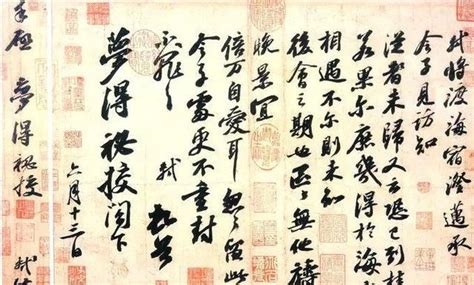 軾將渡海宿澄邁承
令子見訪知
從者未歸又云恐已到桂
若果尔庶幾得於海
相遇不尔則未知
後會之期也區區無他禱
晚景宜
倍万自愛耳怱怱留此
令子處更不重封
不罪〻
軾 頓首
夢得祕校閣下
六月十三日
手啟 夢得祕校 軾封